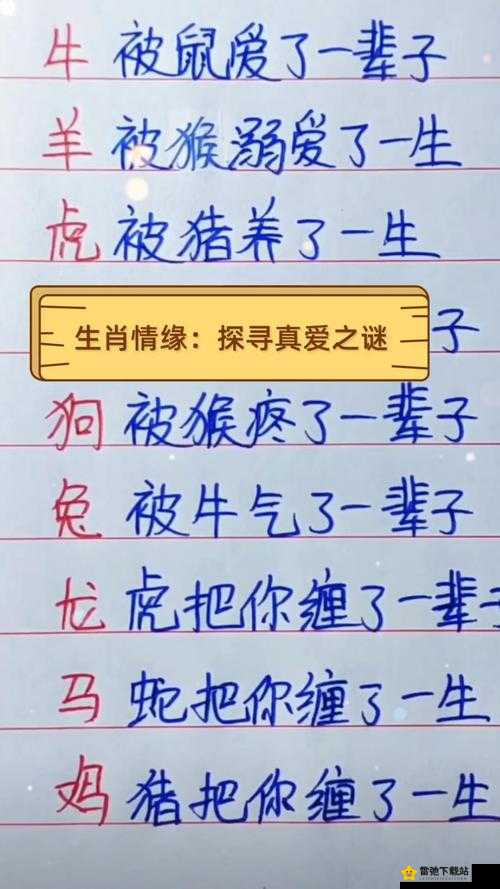 牛 被鼠爱了一辈子
羊 被猴溺爱了一生
虎 被猪养了一生
子
生肖情缘：探寻真爱之谜
狗 被猴疼了一辈子
兔 被牛气了一辈子
龙 虎把你缠了一辈子
马 蛇把你缠了一生
鸡 猪把你缠了一生
雷弛下载站